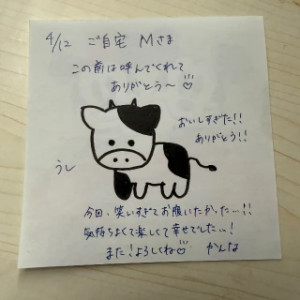 4/12 ご自宅 Mさま
この前は呼んでくれて
ありがとう〜
おいしすぎた!!
ありがとう!!
うし
今回、笑いすぎてお腹いたかったー!!
気持ちよくて楽しくて幸せでした〜!
また!よろしくね かんな